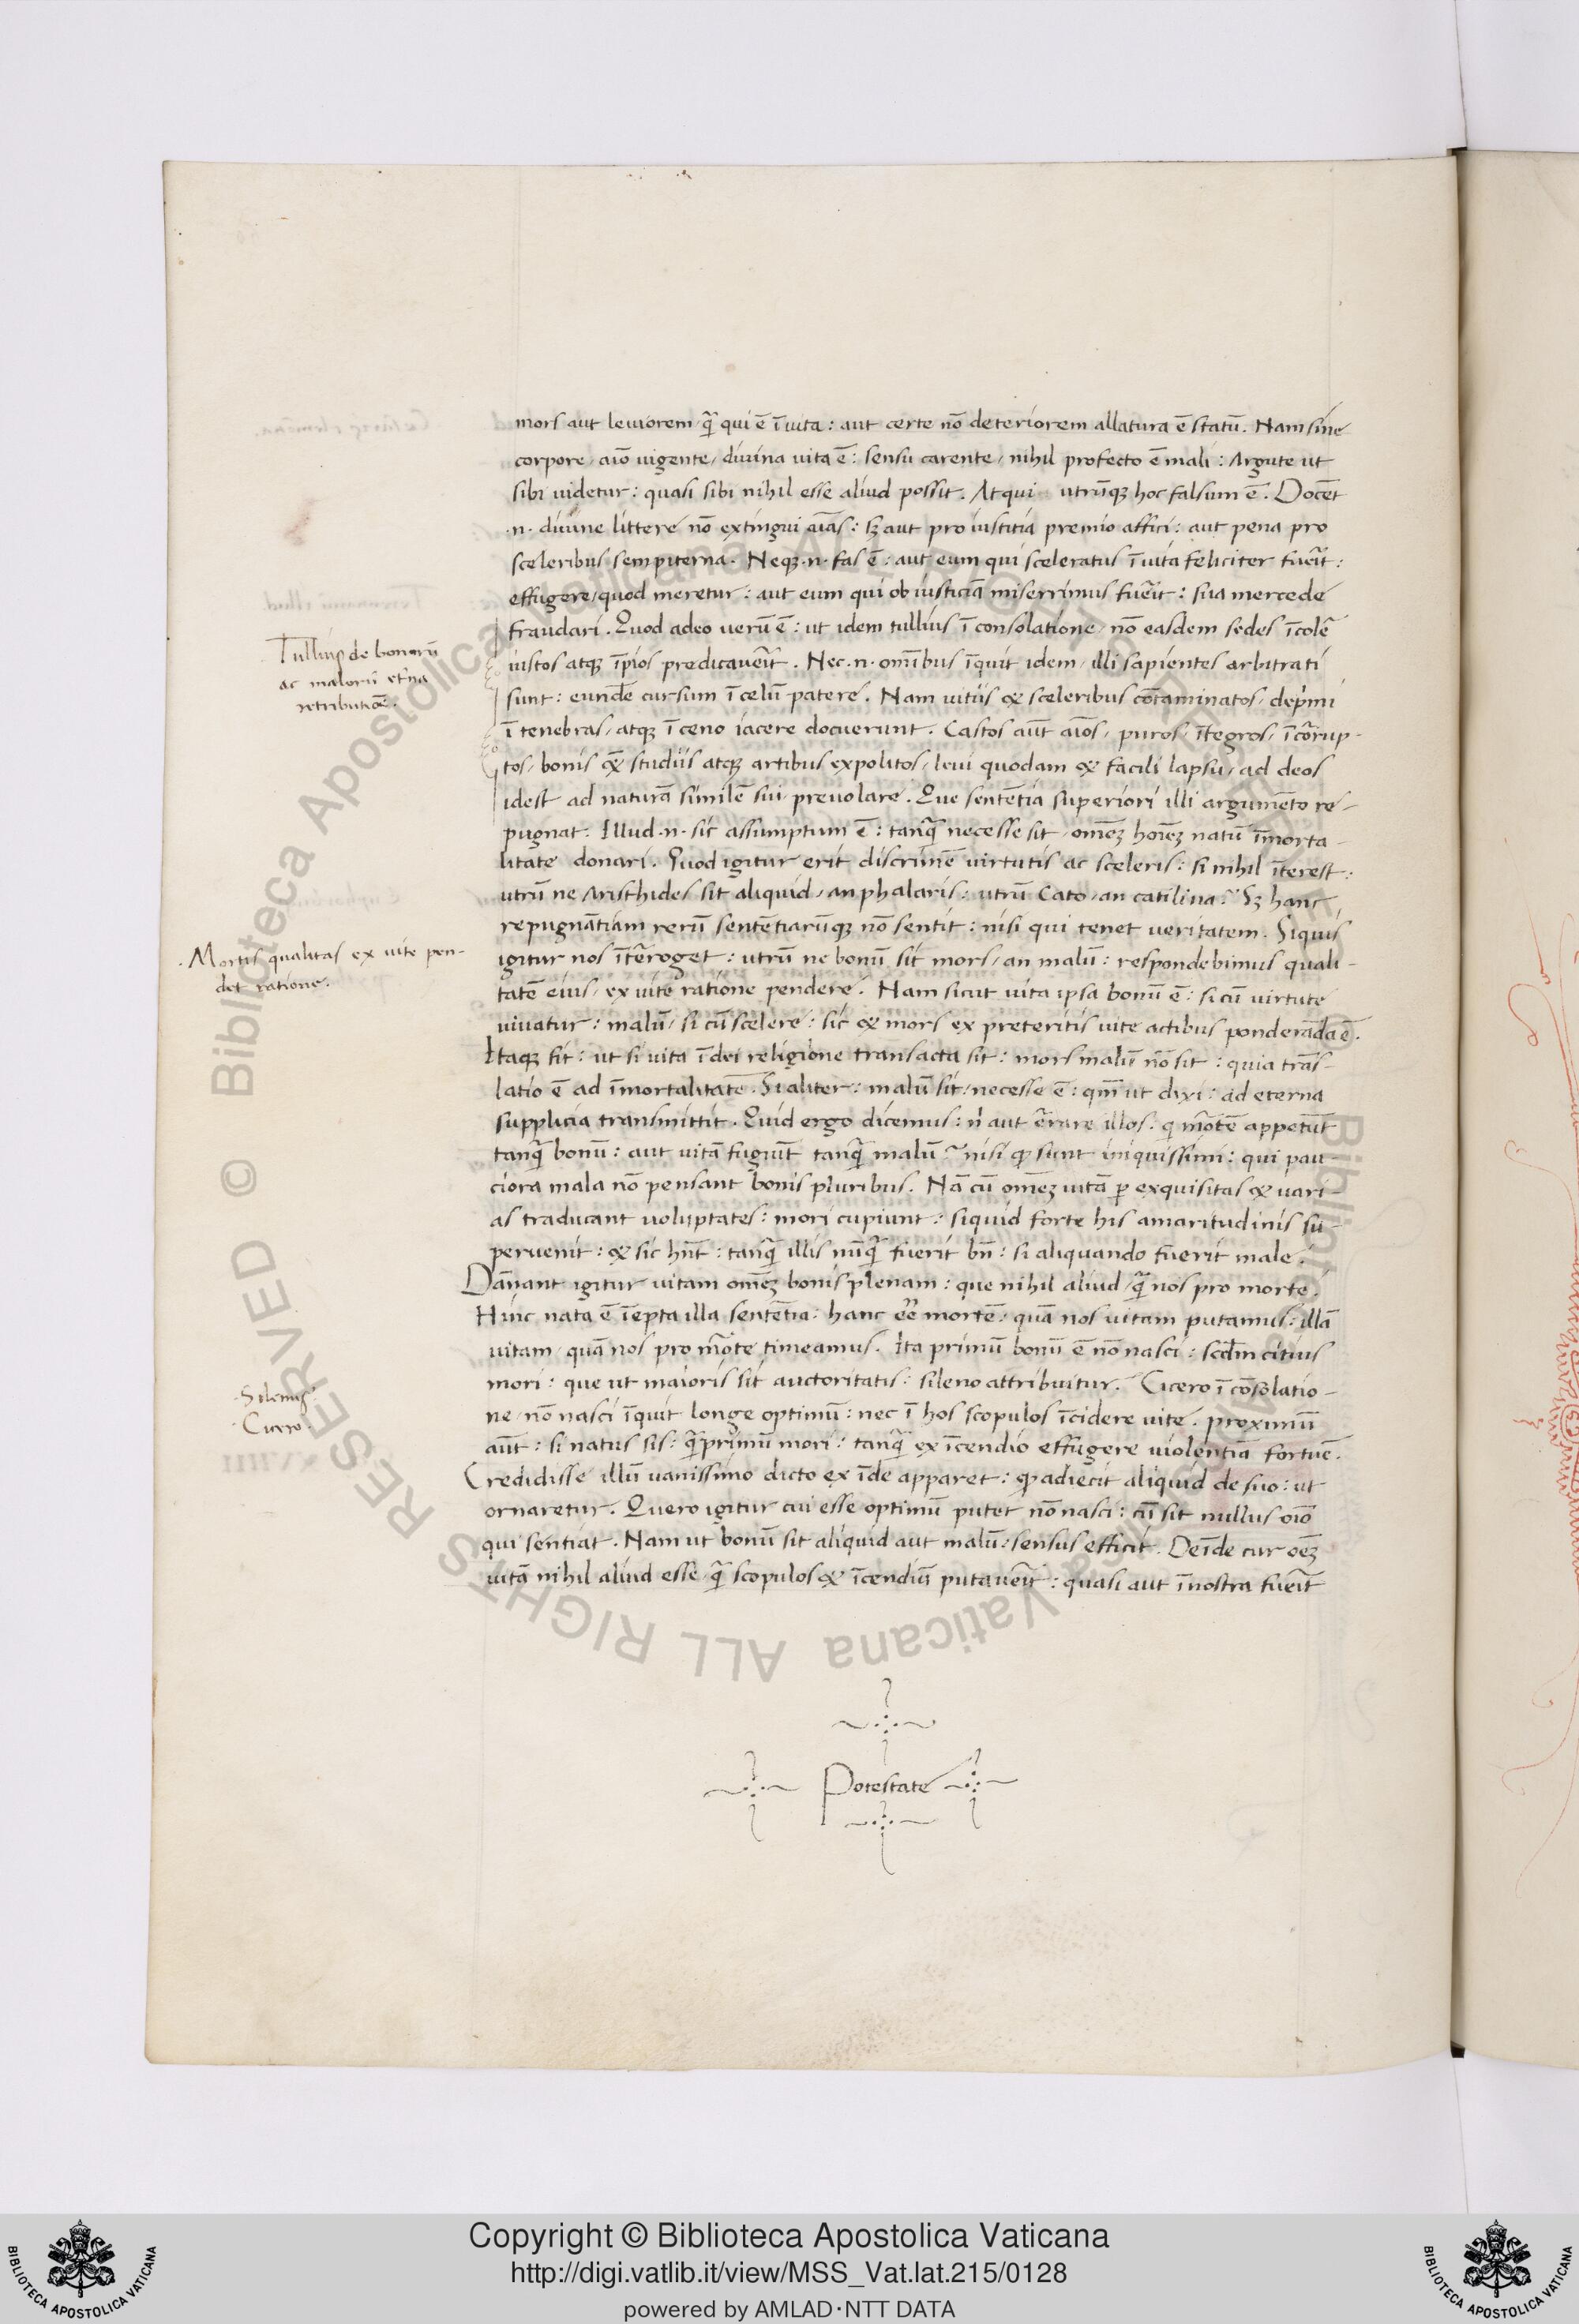 mors aut leuiorem / q̃ꝫ qui ē ī uita : aut certe nō deteriorem allatura ē statū . Nam sine
corpore / aīo uigente / diuina uita ē : sensu carente / nihil profecto ē mali : Argute ut
sibi uidetur : quasi sibi nihil esse aliud possit . Atqui utrūqꝫ hoc falsum ē . Docēt
.n. diuine littere nō extingui aīas : sꝫ aut pro iustitia premio affici : aut pena pro
sceleribus sempiterna . Neqꝫ .n. fas ē : aut eum qui sceleratus ī uita feliciter fuerīt :
effugere / quod meretur : aut eum qui ob iusticiā miserrimus fuerīt : sua mercede
fraudari . Quod adeo uerū ē : ut idem tullius ī consolatione / nō easdem sedes īcolē
iustos atqꝫ īpios predicauerīt . Nec .n. omībus īquit idem / illi sapientes arbitrati
sunt : eundē cursum ī celū patere . Nam uitiis & sceleribus cōtaminatos / deprimi
ī tenebras / atqꝫ ī ceno iacere docuerunt . Castos aūt aīos / puros / ītegros / īcorrup-
tos / bonis q̄ꝫ studiis atqꝫ artibus expolitos / leui quodam & facili lapsu / ad deos
idest ad naturā similē sui / preuolare . Que sentētia superiori illi argumēto re-
pugnat . Illud .n. sic assumptum ē : tanq̃ꝫ necesse sit / omēꝫ hoīeꝫ natū īmorta-
litate donari . Quod igitur erit discrimē virtutis ac sceleris : si nihil īterest :
utrū ne Aristhides sit aliquid / an phalaris : utrū Cato / an catilina ? Sꝫ hanc
repugnātiam rerū sentētiarūqꝫ nō sentit : nisi qui tenet ueritatem . Siquis
igitur nos īterroget : utrū ne bonū sit mors / an malū : respondebimus quali-
tatē eius / ex uite ratione pendere . Nam sicut uita ipsa bonū ē : si cū virtute
uiuatur : malū / si cū scelere : sic & mors ex preteritis uite actibus ponderāda ē .
Itaqꝫ fit : ut si uita ī dei religione transacta sit : mors malū nō sit : quia trās-
latio ē ad īmortalitatē . Si aliter : malū sit / necesse ē : qm̄ ut dixi : ad eterna
supplicia transmittit . Quid ergo dicemus : n̄ aut errare illos : q mortē appetūt
tanq̃ꝫ bonū : aut uitā fugiūt tanq̃ꝫ malū ? nisi qꝫ sunt iniquissimi : qui pau-
ciora mala nō pensant bonis pluribus . Nā cū omēꝫ uitā ꝑ exquisitas & uari-
as traducant uoluptates : mori cupiunt : siquid forte his amaritudinis su-
peruenit : & sic hn̄t : tanq̃ꝫ illis nūq̃ꝫ fuerit bn̄ : si aliquando fuerit male .
Dānant igitur uitam omēꝫ bonis plenam : que nihil aliud / q̃ꝫ nos pro morte .
Hinc nata ē īepta illa sentētia : hanc eē mortē : quā nos uitam putamus : illā
uitam / quā nos pro morte timeamus . Ita primū bonū ē nō nasci : scdm citius
mori : que ut maioris sit auctoritatis : sileno attribuitur . Cicero ī cōsolatio-
ne / nō nasci īquit longe optimū : nec ī hos scopulos īcidere uite . proximū
aūt : si natus sis : q̃ꝫprimū mori : tanq̃ꝫ ex īcendio effugere uiolentiā fortūe .
Credidisse illū uanissimo dicto ex īde apparet : qꝫ adiecit aliquid de suo : ut
ornaretur . Quero igitur cui esse optimū putet nō nasci : cū sit nullus oīo
qui sentiat . Nam ut bonū sit aliquid aut malū : sensus efficit . Deīde cur oēꝫ
uitā nihil aliud esse / q̃ꝫ scopulos & īcendiū putauerīt : quasi aut ī nostra fuerīt
Potestate
Tullius de bonorū
ac malorū et'na
retributiōe .
. Mortis qualitas ex uite pen-
det ratione .
. Silenus .
. Cicero .
© Biblioteca Apostolica Vaticana ALL RIGHTS RESERVED
Copyright © Biblioteca Apostolica Vaticana
http://digi.vatlib.it/view/MSS_Vat.lat.215/0128
powered by AMLAD·NTT DATA
BIBLIOTECA APOSTOLICA VATICANA
BIBLIOTECA APOSTOLICA VATICANA